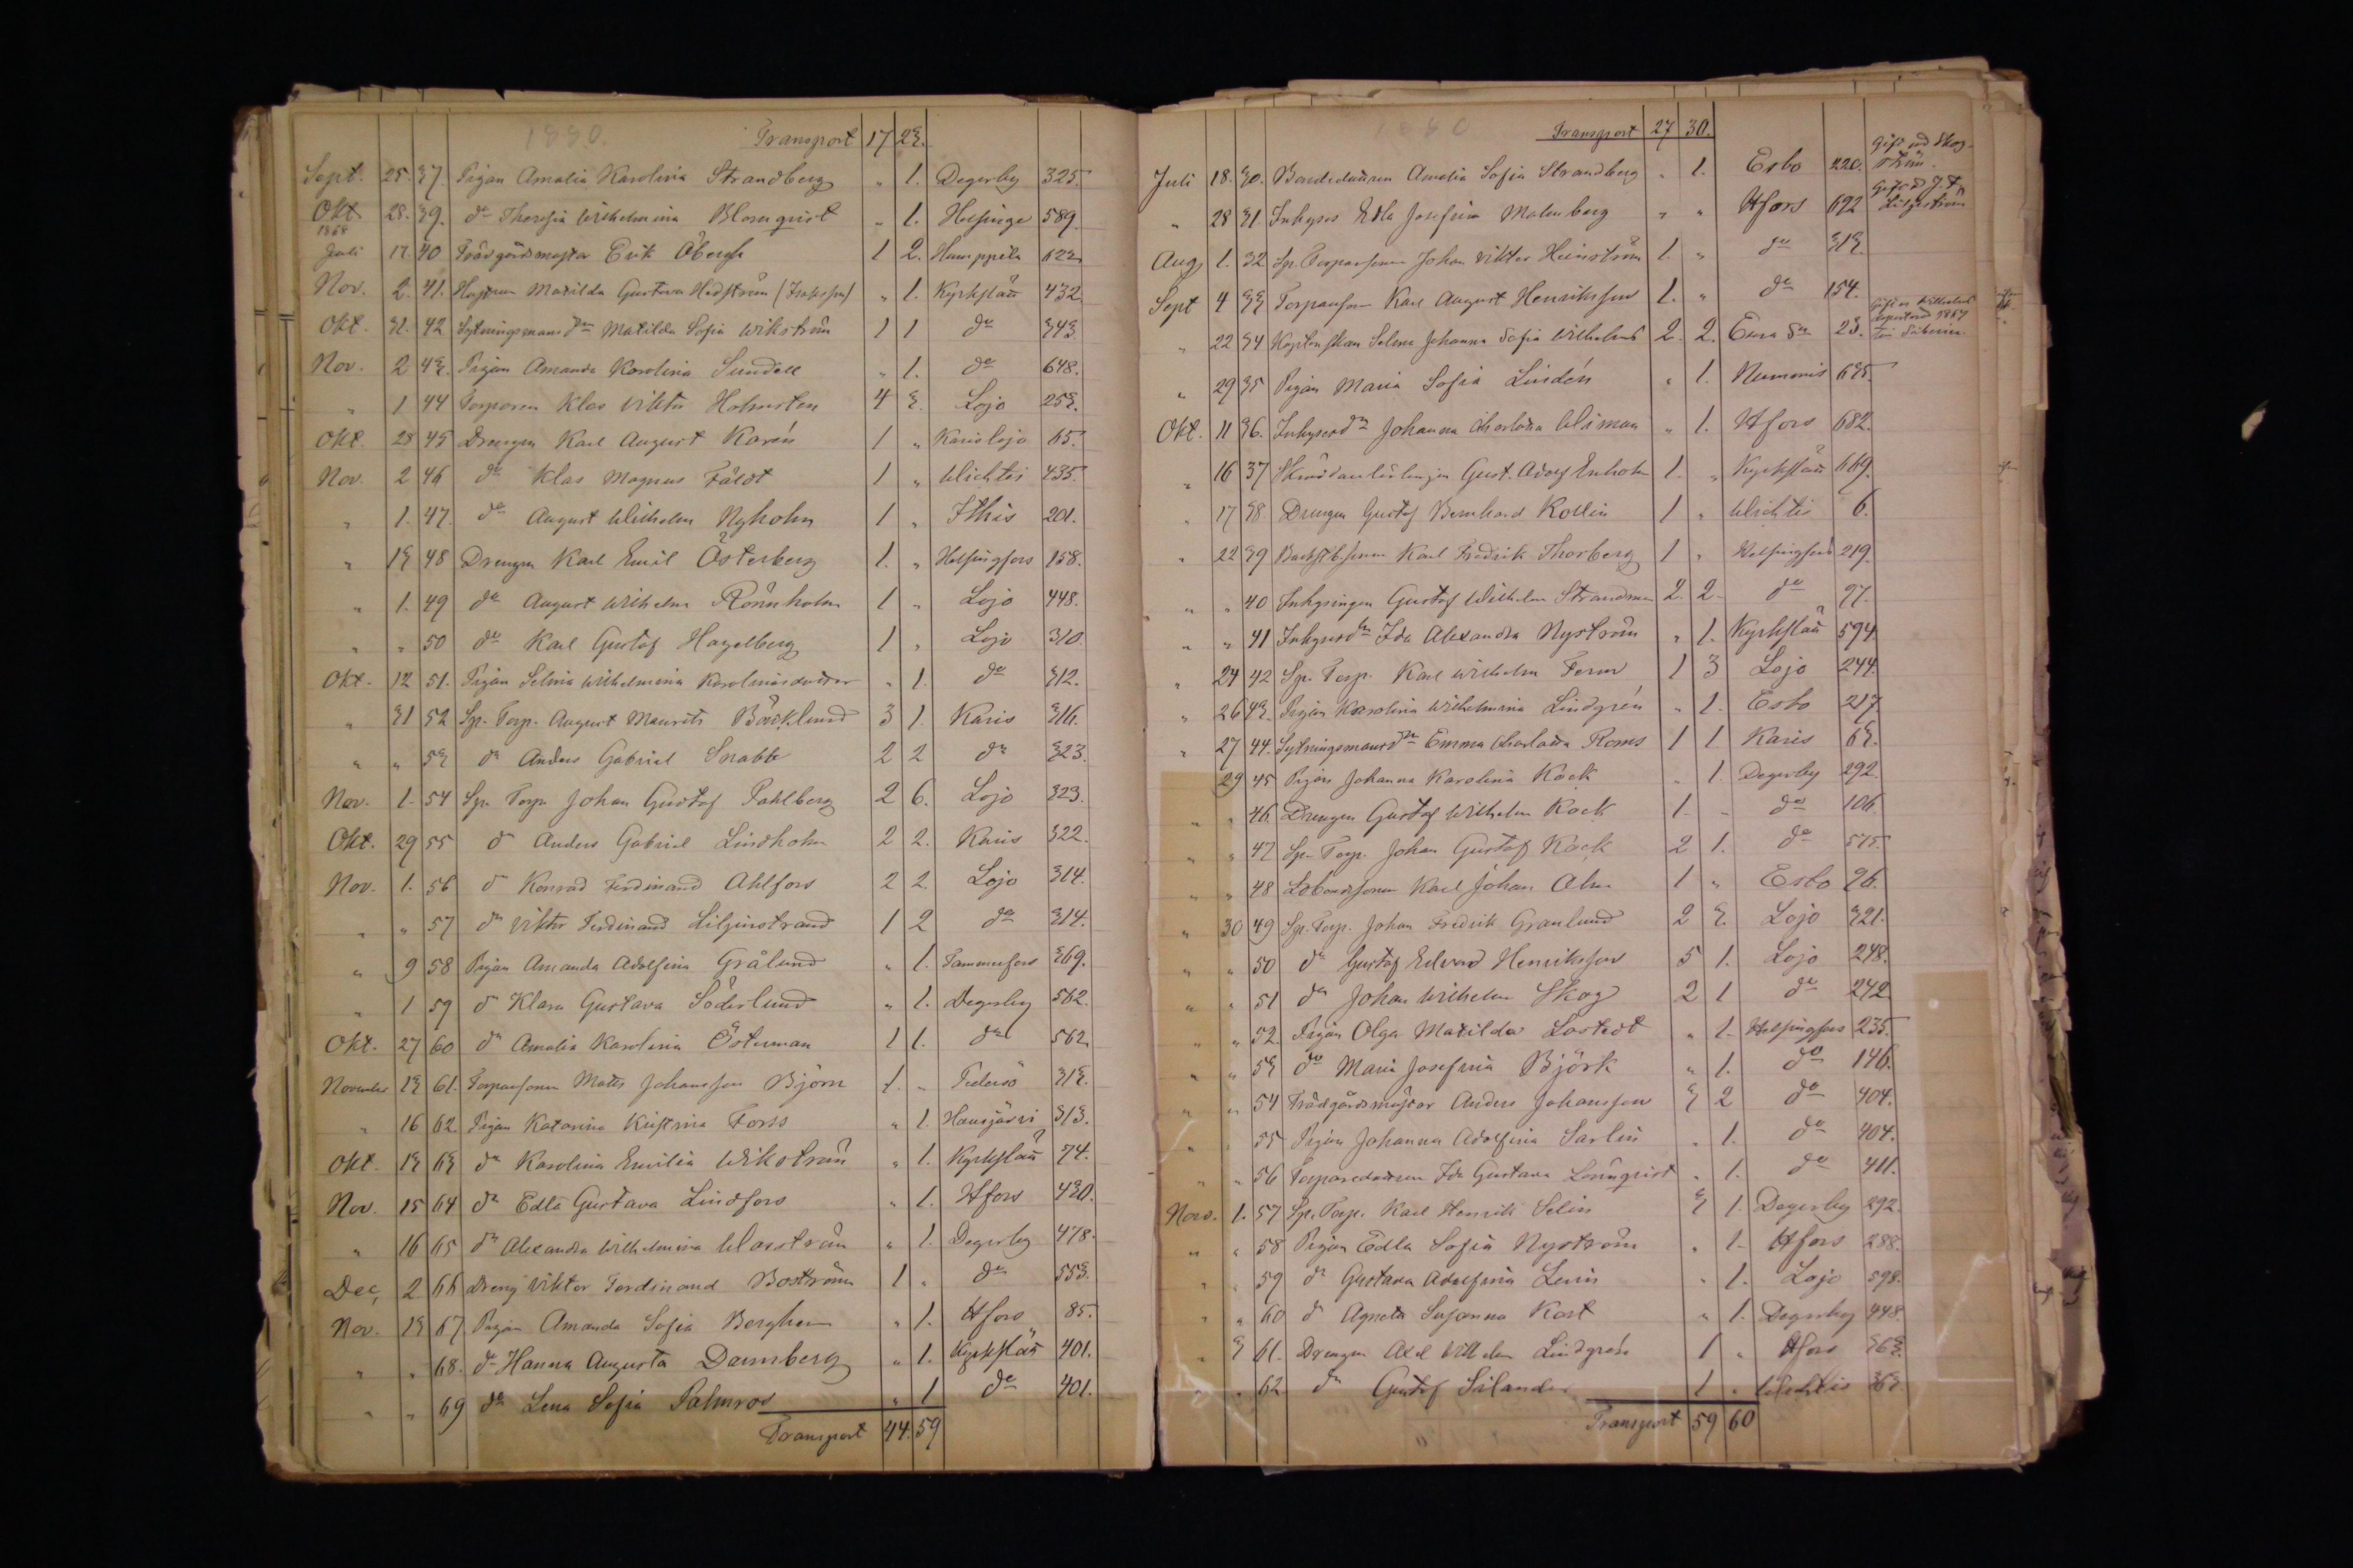 1880.
Transport 17 23.
Sept. 25. 37. Pigan Amalia Karolina Strandberg „ 1. Degerby 325.
Okt. 28. 39. do Theresia Wilhelmina Blomqvist „ 1. Helsinge 589.
1868
Juli 17. 40 Trädgårdsmästar Erik Öbergh 1 2. Humppila 622
Nov. 2. 41. Hustrun Matilda Gustava Hedström „ 1. Kyrkslätt 432.
Okt. 31. 42 Sytningsmans dn Matilda Sofia Wikström 1 1 do 343.
Nov. 2 43. Pigan Amanda Karolina Sundell „ 1. do 648.
„ 1 44 Torparen Klas Viktor Holmsten 4 3. Lojo 253.
Okt. 28 45 Drengen Karl August Karén 1 „ Karislojo 65.
Nov. 2 46 do Klas Magnus Fäldt 1 „ Wichtis 435.
„ 1. 47. do August Wilhelm Nyholm 1 „ Sthis 201.
„ 13 48 Drengen Karl Emil Österberg 1. „ Helsingfors 158.
„ 1. 49 do August Wilhelm Rönnholm 1 „ Lojo 448.
„ „ 50 do Karl Gustaf Hagelberg 1 „ Lojo 310
Okt. 12 51. Pigan Selma Wilhelmina Karolinasdotter „ 1. do 312.
„ 31 52 Sp. Torp. August Maurits Bäcklund 3 1. Karis 316.
„ „ 53 do Anders Gabriel Snabb 2 2 do 323.
Nov. 1. 54 Sp. Torp. Johan Gustaf Pahlberg 2 6. Lojo 323.
Okt. 29 55 d Anders Gabriel Lindholm 2 2. Karis 322.
Nov. 1. 56 d Konrad Ferdinand Ahlfors 2 2. Lojo 314.
„ „ 57 do Viktor Ferdinand Liljenstrand 1 2 do 314.
„ 9 58 Pigan Amanda Adolfina Grålund „ 1. Tammerfors 369.
„ 1 59 d Klara Gustava Söderlund „ 1. Degerby 562.
Okt. 27 60 do Amalia Karolina Österman 1 1. do 562.
November 13 61. Torparsonen Matts Johansson Björn 1. „ Pedersö 313.
„ 16 62 Pigan Katarina Kristina Forss „ 1. Hausjärvi 313.
Okt. 13 63 do Karolina Emilia Wikström „ 1. Kyrkslätt 74.
Nov. 15 64 do Edla Gustava Lindfors „ 1. Hfors 430.
„ 16 65 do Alexandra Wilhelmina Wasström „ 1. Degerby 478.
Dec. 2 66 Dreng Viktor Ferdinand Boström 1 „ do 553.
Nov. 13 67 Pigan Amanda Sofia Berghem „ 1. Hfors 85.
„ „ 68. do Hanna Augusta Dannberg „ 1. Kyrkslätt 401.
„ „ 69 do Lena Sofia Palmros „ 1 do 401.
Transport 44. 59
1880
Transport 27 30.
Juli 18. 30. Bondedottren Amalia Sofia Strandberg „ 1. Esbo 220. Gift md Skogström.
„ 28 31 Inhyses Edla Josefina Malmberg „ „ Hfors 692 Liljeström
Aug. 1. 32 Sp. Torparsonen Johan Viktor Heinström 1. „ do 313.
Sept 4 33 Torparson Karl August Henriksson 1. „ do 154.
„ 22 34 Kaptenskan Selma Johanna Sofia Wilhelms 2. 2. Enra Sn 23.
„ 29 35 Pigan Maria Sofia Lindén „ 1. Nummis 635.
Okt. 11 36. Inhyses dn Johanna Charlotta Wiman „ 1. Hfors 682.
„ 16 37 Skräddarlärlingen Gust. Adolf Enholm 1. „ Kyrkslätt 669.
„ 17 38. Drengen Gustaf Bernhard Kollin 1 „ Wichtis 6.
„ 22 39 Backst.b.sonen Karl Fredrik Thorberg 1 „ Helsingfors 219.
„ „ 40 Inhysingen Gustaf Wilhelm Strandman 2. 2. do 97.
„ „ 41 Inhyses dn Ida Alexandra Nyström „ 1. Kyrkslätt 594
„ 24 42 Sp. Torp. Karl Wilhelm Ferm 1 3 Lojo 244.
„ 26 43. Pigan Karolina Wilhelmina Lindgrén „ 1. Esbo 217.
„ 27 44. Sytningsmans dn Emma Charlotta Roms 1 1 Karis 63.
29 45 Pigan Johanna Karolina Kock „ 1. Degerby 292.
„ „ 46 Drengen Gustaf Wilhelm Kock 1. „ do 106
„ „ 47 Sp. Torp. Johan Gustaf Kock 2 1. do 575.
„ „ 48 Ldbondsonen Karl Johan Alm 1 „ Esbo 26.
„ 30 49 Sp. Torp. Johan Fredrik Granlund 2 3. Lojo 321.
„ „ 50 do Gustaf Edvard Henriksson 5 1. Lojo 248.
„ „ 51 do Johan Wilhelm Skog 2 1 do 242.
„ „ 52. Pigan Olga Matilda Löstedt „ 1. Helsingfors 235.
„ „ 53 do Maria Josefina Björk „ 1. do 146.
„ „ 54 Trädgårdsmästar Anders Johansson 3 2 do 404.
„ „ 55 Pigan Johanna Adolfina Sarlin „ 1. do 404.
„ „ 56 Torparedottren Ida Gustava Lönnqvist „ 1. do 411.
Nov. 1. 57 Sp. Torp. Karl Henrik Selin 3 1. Degerby 292.
„ „ 58 Pigan Edla Sofia Nyström „ 1. Hfors 288.
„ „ 59 do Gustava Adolfina Lenin „ 1. Lojo 598.
„ „ 60 d Agneta Susanna Kart „ 1. Degerby 448
„ 3 61. Drengen Axel Wilhelm Lindgrén 1 „ Hfors 363.
„ „ 62 do Gustaf Silander 1 „ Wichtis 363.
Transport 59 60